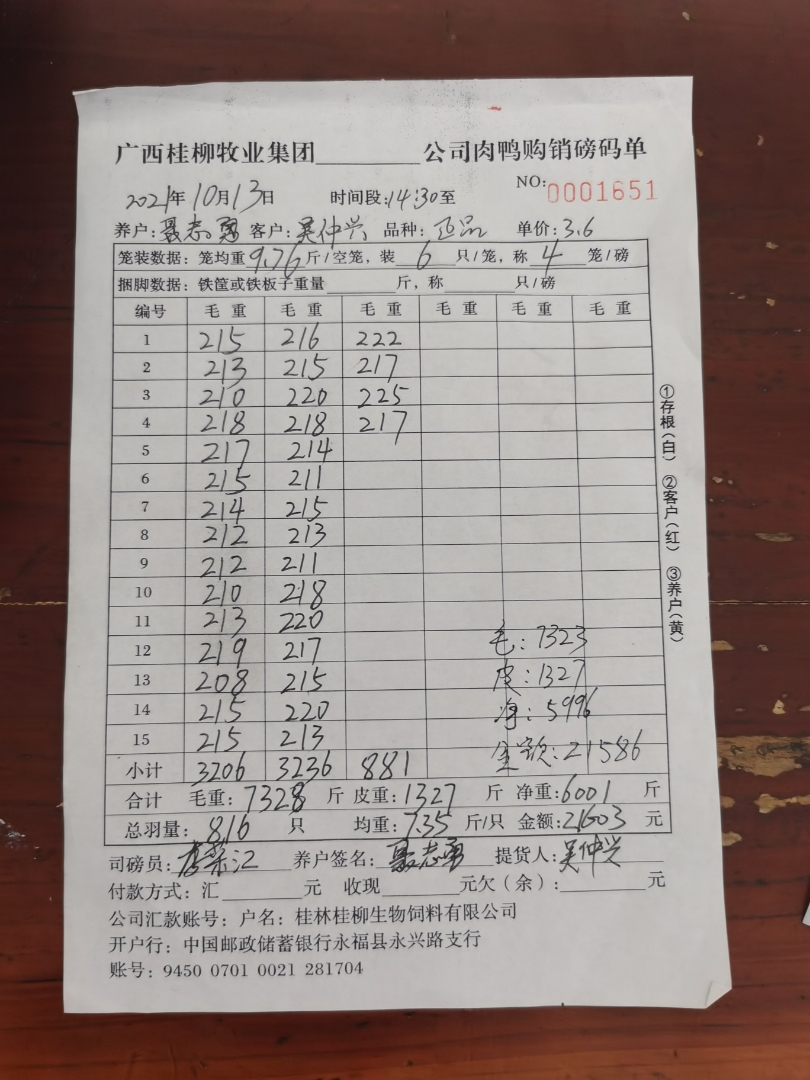 广西桂柳牧业集团________公司肉鸭购销磅码单
NO: 0001651
2021年10月13日 时间段: 14:30至
养户: 聂志勇 客户: 吴仲兴 品种: 正品 单价: 3.6
笼装数据: 笼均重9.76斤/空笼, 装6只/笼, 称4笼/磅
捆脚数据: 铁筐或铁板子重量______斤, 称______只/磅
编号 毛重 毛重 毛重 毛重 毛重 毛重
1 215 216 222
2 213 215 217
3 210 220 225
4 218 218 217
5 217 214
6 215 211
7 214 215
8 212 213
9 212 211
10 210 218
11 213 220
12 219 217
13 208 215
14 215 220
15 215 213
毛: 7323
皮: 1327
净: 5996
金额: 21586
小计 3206 3236 881
合计 毛重: 7328斤 皮重: 1327斤 净重: 6001斤
总羽量: 816只 均重: 7.35斤/只 金额: 21603元
司磅员: 养户签名: 聂志勇 提货人: 吴仲兴
付款方式: 汇______元 收现______元欠(余): ______元
公司汇款账号: 户名: 桂林桂柳生物饲料有限公司
开户行: 中国邮政储蓄银行永福县永兴路支行
账号: 9450 0701 0021 281704
①存根(白) ②客户(红) ③养户(黄)